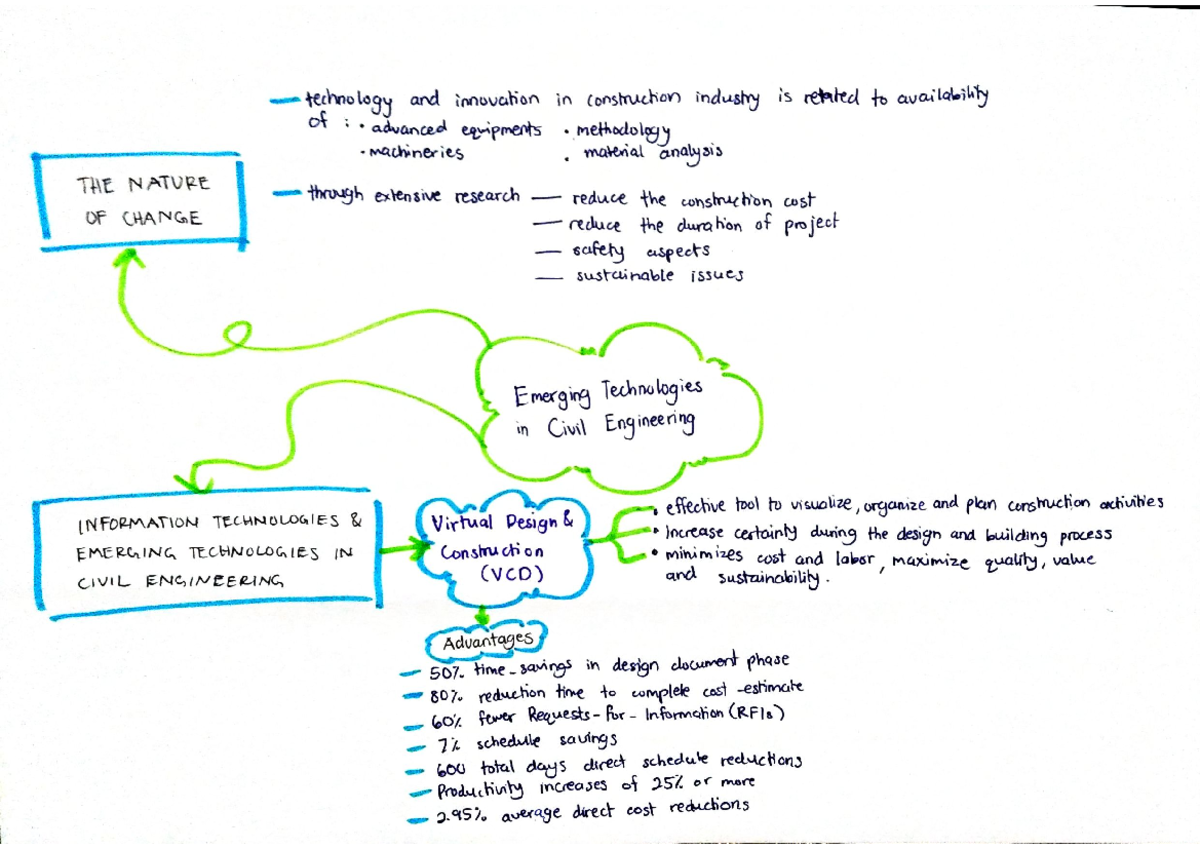 — technology and innovation in construction industry is related to availability
of : • advanced equipments • methodology
• machineries • material analysis
THE NATURE
OF CHANGE
— through extensive research — reduce the construction cost
— reduce the duration of project
— safety aspects
— sustainable issues
Emerging Technologies
in Civil Engineering
INFORMATION TECHNOLOGIES &
EMERGING TECHNOLOGIES IN
CIVIL ENGINEERING
Virtual Design &
Construction
(VCD)
• effective tool to visualize, organize and plan construction activities
• Increase certainly during the design and building process
• minimizes cost and labor, maximize quality, value
and sustainability.
Advantages
— 50% time-savings in design document phase
— 80% reduction time to complete cost-estimate
— 60% fewer Requests-for-Information (RFIs)
— 7% schedule savings
— 600 total days direct schedule reductions
— Productivity increases of 25% or more
— 2.95% average direct cost reductions